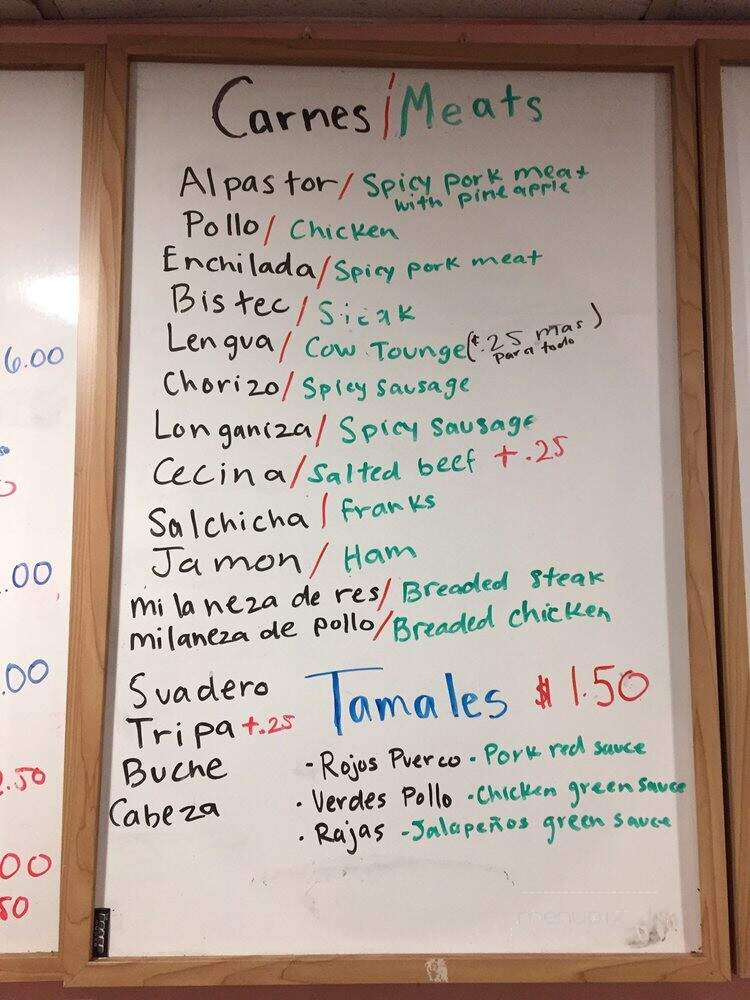 Carnes/Meats
Alpastor/Spicy pork meat
with pineapple
Pollo/Chicken
Enchilada/Spicy pork meat
Bistec/Steak
Lengua/Cow Tounge($.25 mas
para todo)
Chorizo/Spicy sausage
Longaniza/Spicy sausage
Cecina/Salted beef +.25
Salchicha/franks
Jamon/Ham
milaneza de res/Breaded steak
milaneza de pollo/Breaded chicken
Suadero
Tripa +.25
Buche
Cabeza
Tamales $1.50
-Rojos Puerco - Pork red sauce
· Verdes Pollo -Chicken green sauce
· Rajas -Jalapeños green sauce
6.00
.00
.00
.50
00
50
menupix